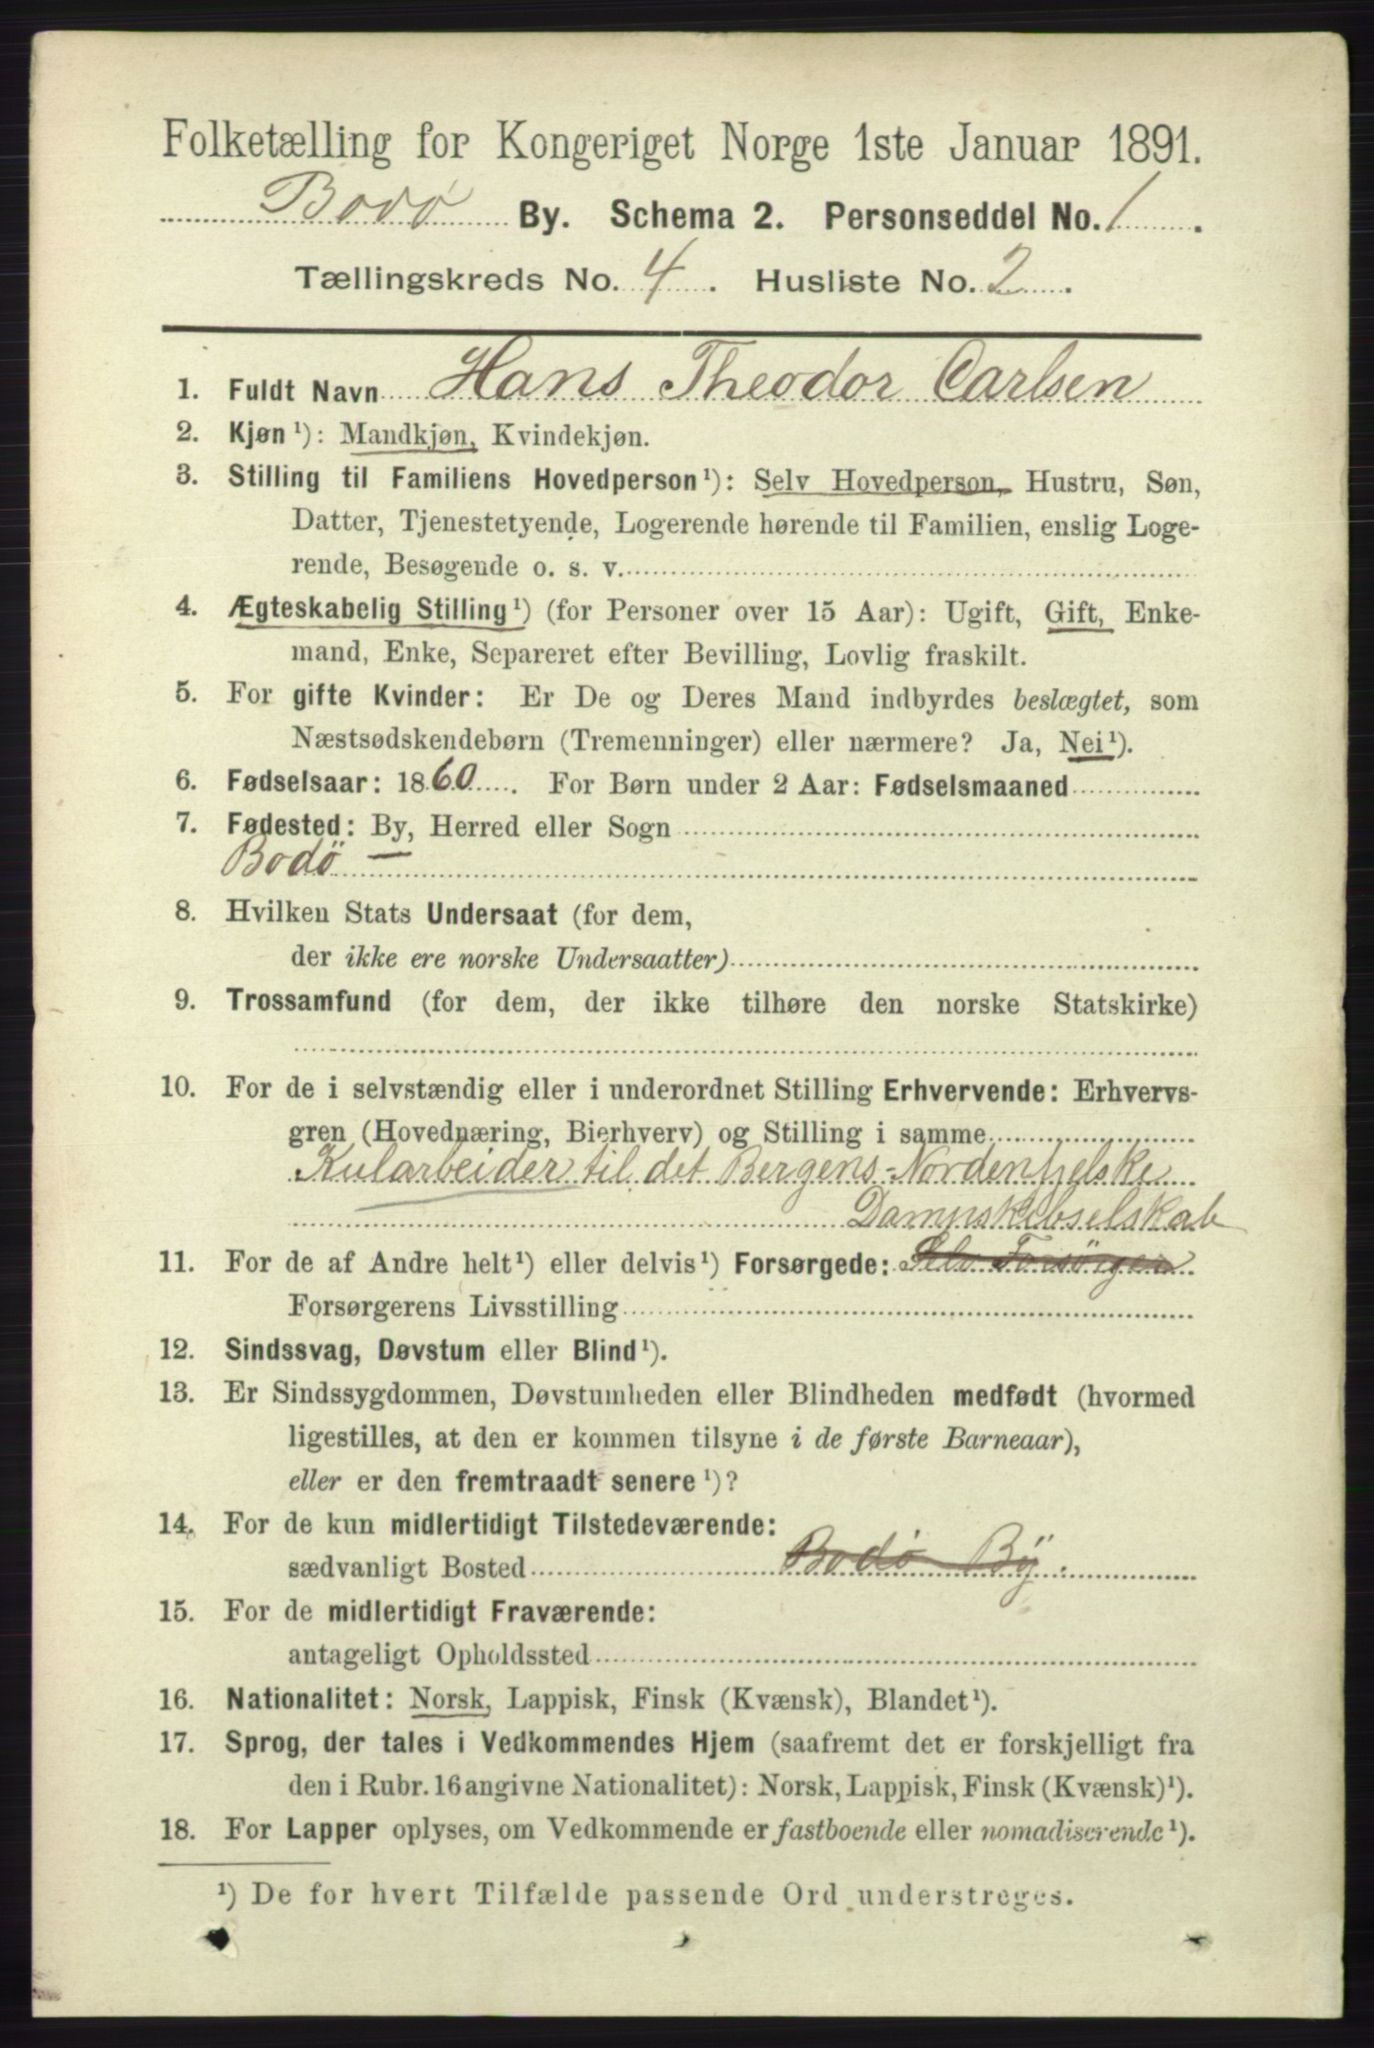 Folketælling for Kongeriget Norge 1ste Januar 1891.
Bodø By. Schema 2. Personseddel No. 1.
Tællingskreds No. 4. Husliste No. 2.
1. Fuldt Navn Hans Theodor Carlsen
2. Kjøn¹): Mandkjøn, Kvindekjøn.
3. Stilling til Familiens Hovedperson¹): Selv Hovedperson, Hustru, Søn,
Datter, Tjenestetyende, Logerende hørende til Familien, enslig Loge-
rende, Besøgende o. s. v.
4. Ægteskabelig Stilling¹) (for Personer over 15 Aar): Ugift, Gift, Enke-
mand, Enke, Separeret efter Bevilling, Lovlig fraskilt.
5. For gifte Kvinder: Er De og Deres Mand indbyrdes beslægtet, som
Næstsødskendebørn (Tremenninger) eller nærmere? Ja, Nei¹).
6. Fødselsaar: 1860. For Børn under 2 Aar: Fødselsmaaned
7. Fødested: By, Herred eller Sogn
Bodö —
8. Hvilken Stats Undersaat (for dem,
der ikke ere norske Undersaatter)
9. Trossamfund (for dem, der ikke tilhøre den norske Statskirke)
10. For de i selvstændig eller i underordnet Stilling Erhvervende: Erhvervs-
gren (Hovednæring, Bierhverv) og Stilling i samme
Kularbeider til det Bergens-Nordenfjelske
Dampskibselskab
11. For de af Andre helt¹) eller delvis¹) Forsørgede: Selv Forsörger
Forsørgerens Livsstilling
12. Sindssvag, Døvstum eller Blind¹).
13. Er Sindssygdommen, Døvstumheden eller Blindheden medfødt (hvormed
ligestilles, at den er kommen tilsyne i de første Barneaar),
eller er den fremtraadt senere¹)?
14. For de kun midlertidigt Tilstedeværende:
sædvanligt Bosted Bodø By.
15. For de midlertidigt Fraværende:
antageligt Opholdssted
16. Nationalitet: Norsk, Lappisk, Finsk (Kvænsk), Blandet¹).
17. Sprog, der tales i Vedkommendes Hjem (saafremt det er forskjelligt fra
den i Rubr. 16 angivne Nationalitet): Norsk, Lappisk, Finsk (Kvænsk)¹).
18. For Lapper oplyses, om Vedkommende er fastboende eller nomadiserende¹).
¹) De for hvert Tilfælde passende Ord understreges.